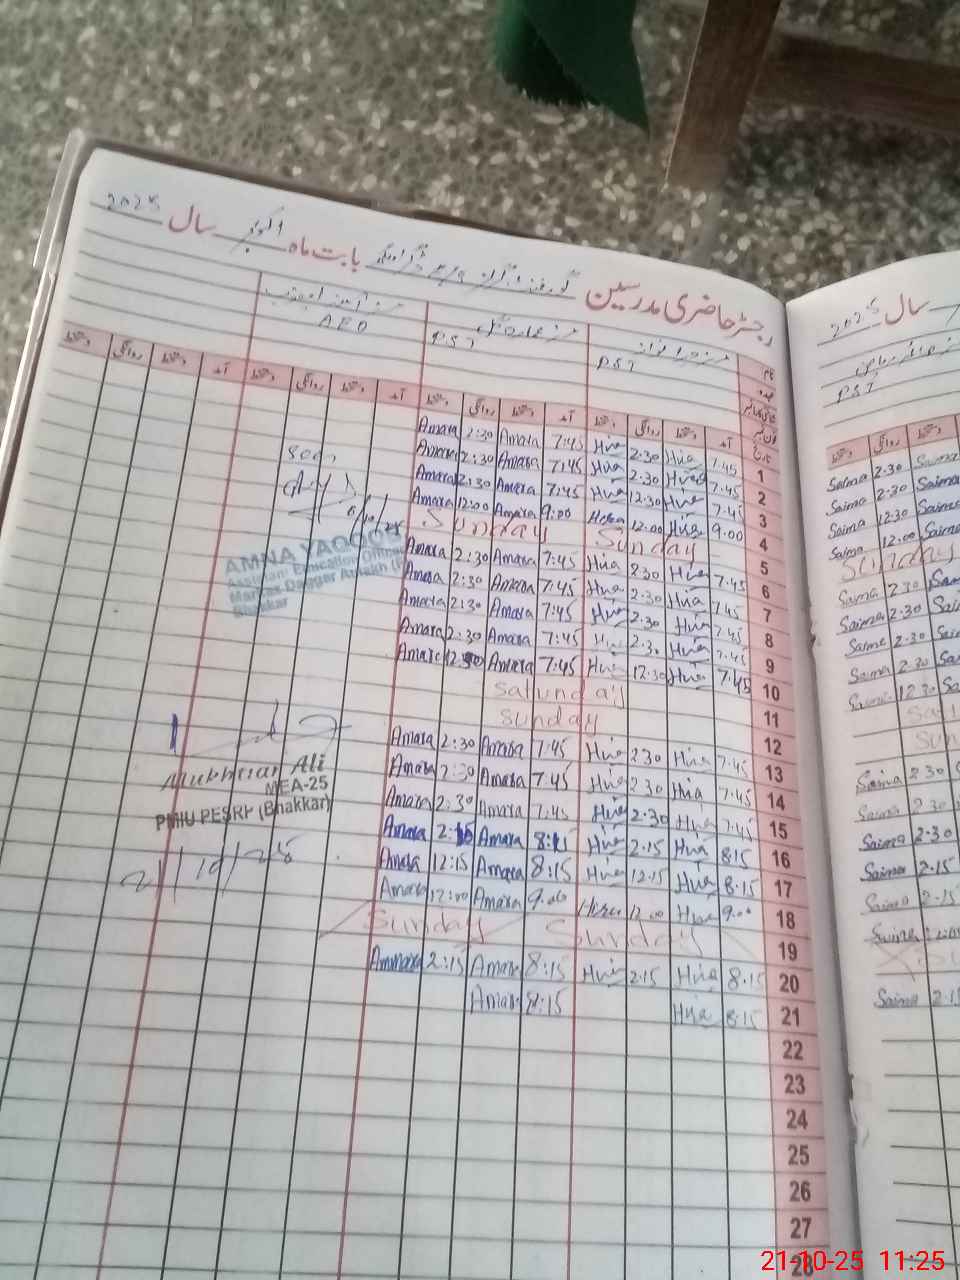 رجسٹر حاضری مدرسین بابت ماہ اکتوبر سال 2025
سال 2025
PST
PST
AEO
PST
آمد دستخط روانگی دستخط آمد دستخط روانگی دستخط آمد دستخط روانگی دستخط
1 7:45 Hira 2:30 Hira 7:45 Amara 2:30 Amara
2 7:45 Hira 2:30 Hira 7:45 Amara 2:30 Amara
3 7:45 Hira 12:30 Hira 7:45 Amara 2:30 Amara
4 9:00 Hira 12:00 Hira 9:00 Amara 12:00 Amara
5 Sunday Sunday
6 7:45 Hira 2:30 Hira 7:45 Amara 2:30 Amara
7 7:45 Hira 2:30 Hira 7:45 Amara 2:30 Amara
8 7:45 Hira 2:30 Hira 7:45 Amara 2:30 Amara
9 7:45 Hira 2:30 7:45 Amara 2:30 Amara
10 7:45 Hira 12:30 Hira 7:45 Amara 12:30 Amara
11 Saturday
12 Sunday
13 7:45 Hira 2:30 Hira 7:45 Amara 2:30 Amara
14 7:45 Hira 2:30 Hira 7:45 Amara 2:30 Amara
15 7:45 Hira 2:30 Hira 7:45 Amara 2:30 Amara
16 8:15 Hira 2:15 Hira 8:15 Amara 2:15 Amara
17 8:15 Hira 12:15 Hira 8:15 Amara 12:15 Amara
18 9:00 Hira 12:00 Hira 9:00 Amara 12:00 Amara
19 Sunday Sunday
20 8:15 Hira 2:15 Hira 8:15 Amara 2:15 Ammara
21 8:15 Hira 8:15 Amara
22
23
24
25
26
27
28
AMNA YAQOOB
Assistant Education Officer
Markaz Daggar
Bhakkar
Mukhtiar Ali
MEA-25
PMIU PESRP (Bhakkar)
21/10/25
Saima 2:30 Saima
Saima 2:30 Saima
Saima 12:30 Saima
Saima 12:00 Saima
Sunday
Saima 2:30
Saima 2:30
Saima 2:30
Saima 2:30
Saima 12:30
Saima 2:30
Saima 2:30
Saima 2:30
Saima 2:15
Saima 2:15
Saima
Saima 2:15
21-10-25 11:25